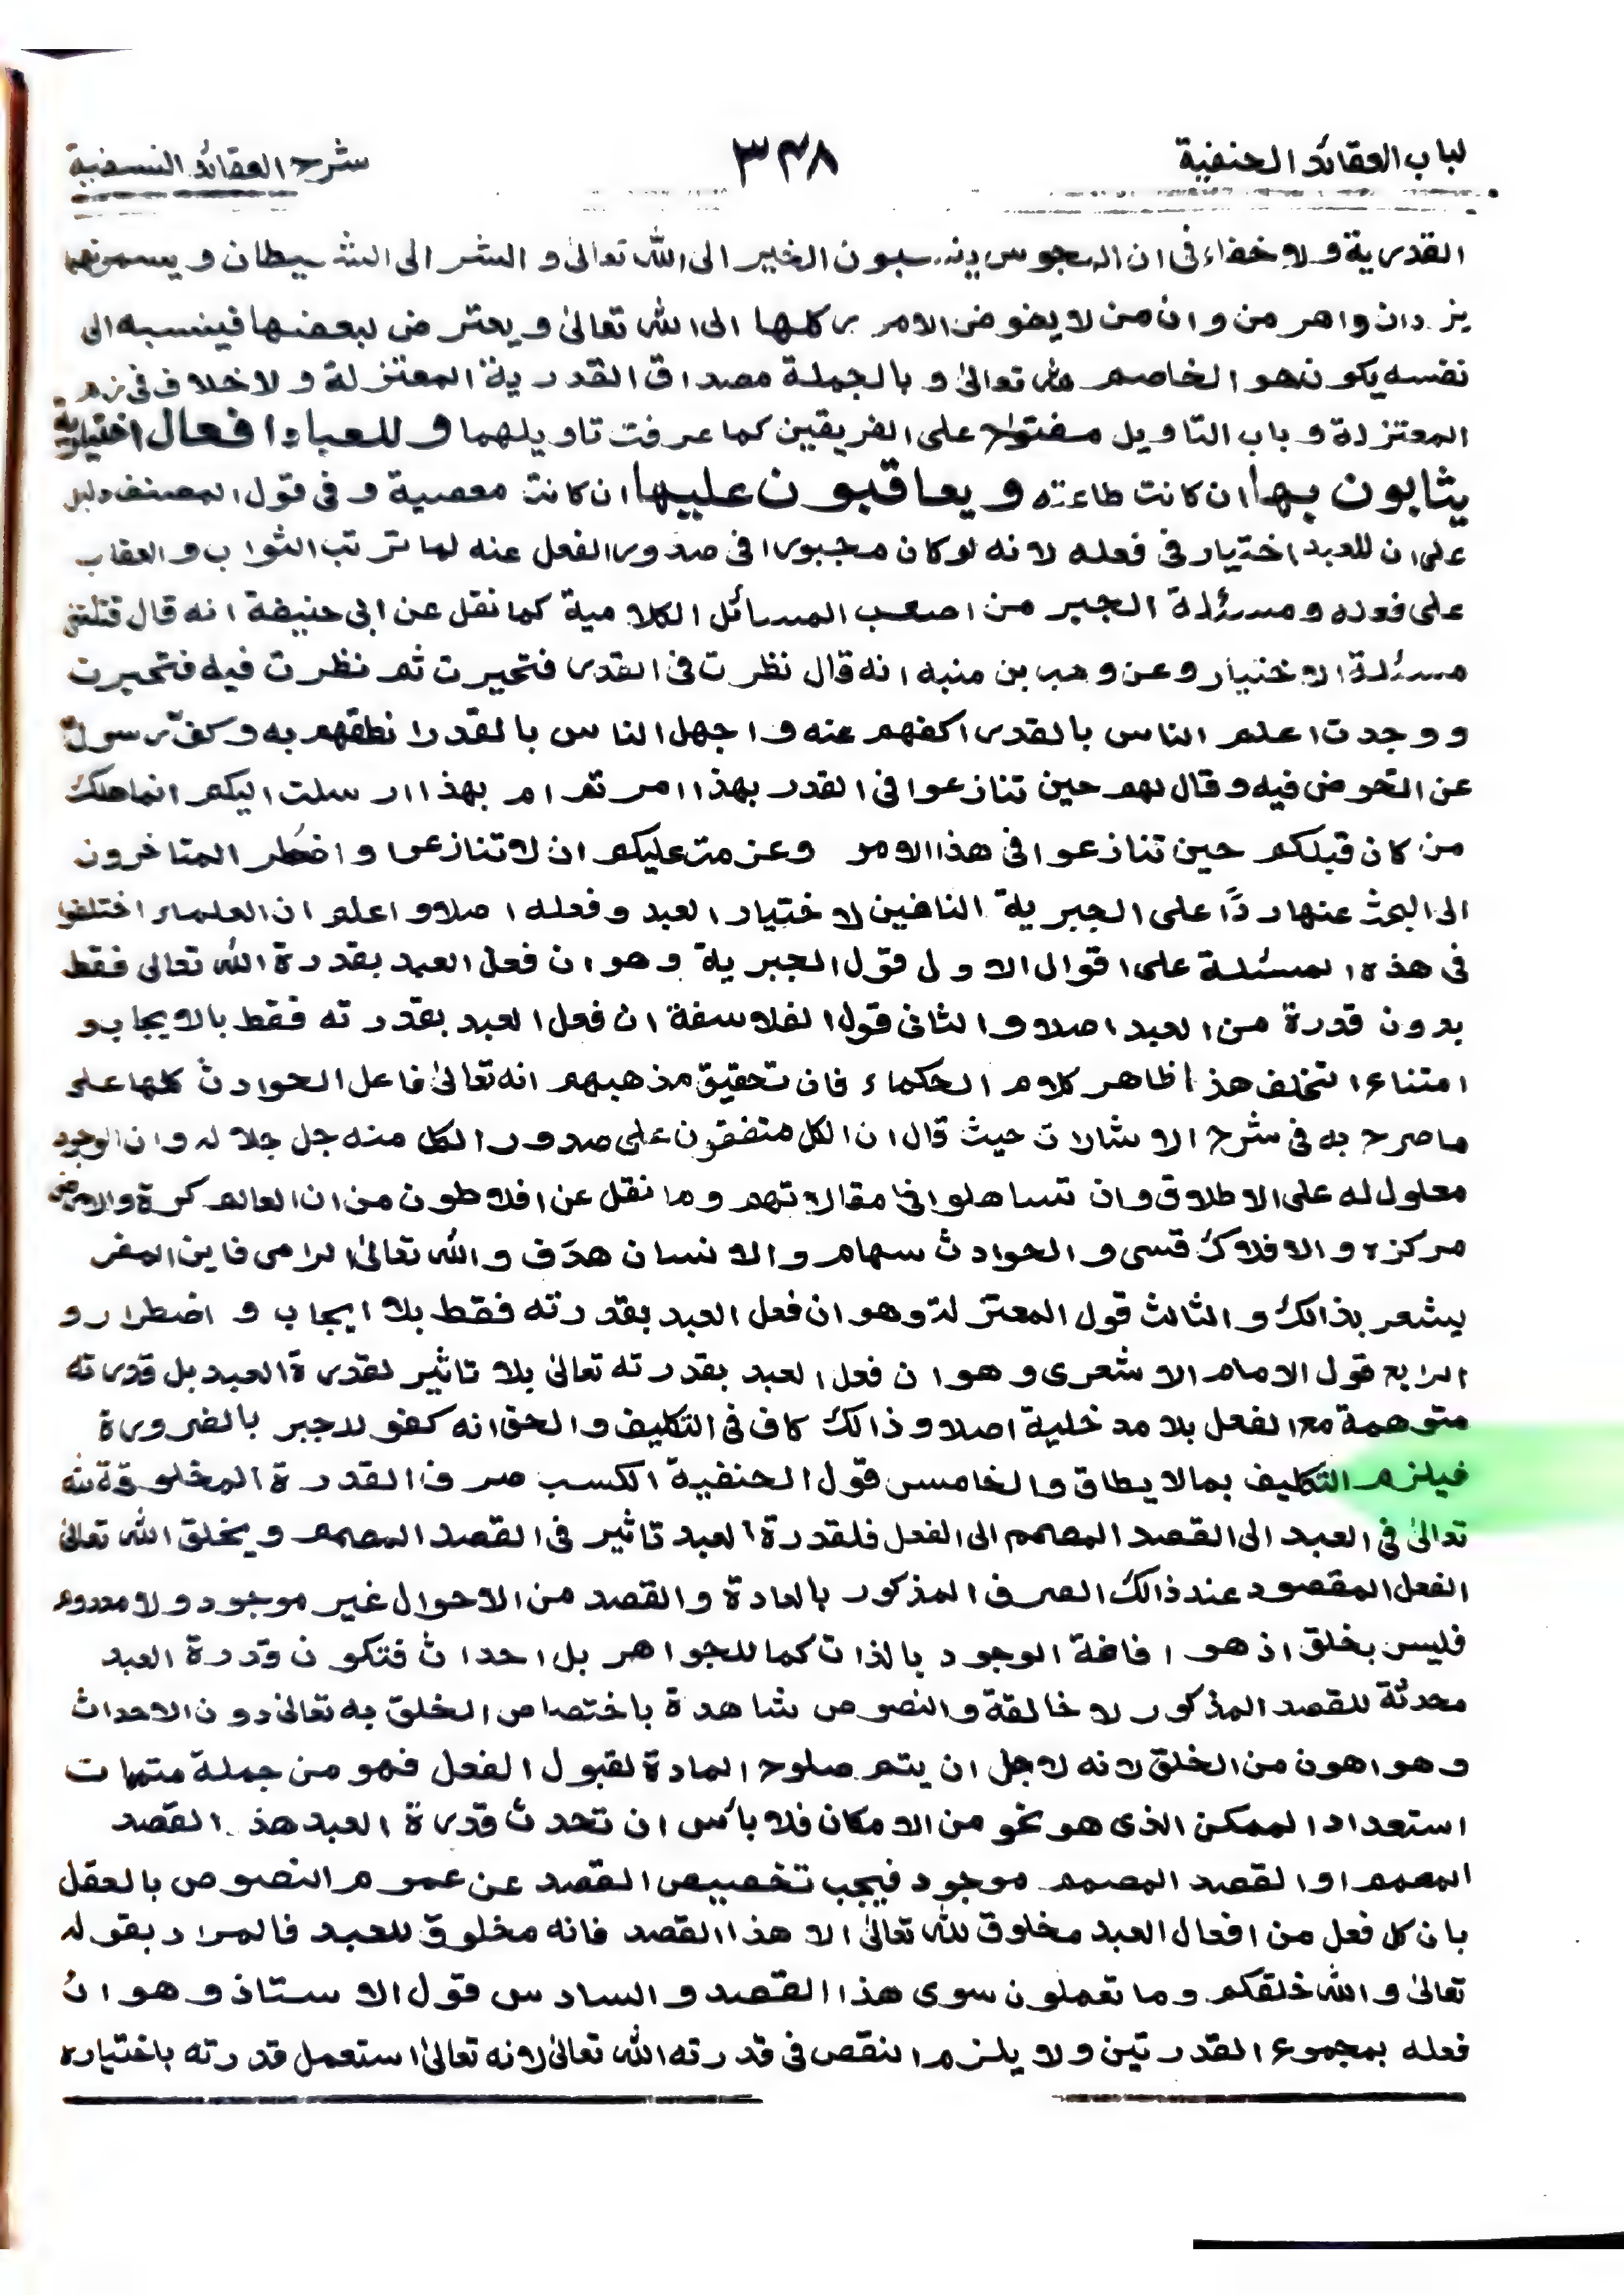 لباب العقائد الحنفية ٣٣٨ شرح العقائد النسفية
القدرية ولا خفاء فى ان المجوس ينسبون الخير الى الله تعالىٰ و الشر الى الشيطان و يسمونهما
يزدان واهرمن وان من لا يفوض الامور كلها الى الله تعالىٰ و يعترض لبعضها فينسبه الى
نفسه يكون هو المخاصم لله تعالىٰ و بالجملة مصداق القدرية المعتزلة ولا خلاف فى ذم
المعتزلة و باب التاويل مفتوح على الفريقين كما عرفت تاويلهما وللعباد افعال اختيارية
يثابون بها ان كانت طاعته ويعاقبون عليها ان كانت معصية و فى قول المصنف دليل
على ان للعبد اختيار فى فعله لانه لو كان مجبورا فى صدور الفعل عنه لما ترتب الثواب و العقاب
على فعله و مسئلة الجبر من اصعب المسائل الكلامية كما نقل عن ابى حنيفة انه قال قتلتنى
مسئلة الاختيار و عن وهب بن منبه انه قال نظرت فى القدر فتحيرت ثم نظرت فيه فتحيرت
و وجدت اعلم الناس بالقدر اكفهم عنه و اجهل الناس بالقدر انطقهم به و كف رسول
عن الخوض فيه و قال لهم حين تنازعوا فى القدر بهذا امرتم ام بهذا ارسلت اليكم انما هلك
من كان قبلكم حين تنازعوا فى هذا الامر وعزمت عليكم ان لا تنازعوا و اضطر المتاخرون
الى البحث عنها ردًا على الجبرية النافين لاختيار العبد و فعله اصلا و اعلم ان العلماء اختلفوا
فى هذه المسئلة على اقوال الاول قول الجبرية و هو ان فعل العبد بقدرة الله تعالى فقط
بدون قدرة من العبد اصلا و الثانى قول الفلاسفة ان فعل العبد بقدرته فقط بالايجاب و
امتناع التخلف هذا ظاهر كلام الحكماء فان تحقيق مذهبهم انه تعالىٰ فاعل الحوادث كلها على
ما صرح به فى شرح الاشارات حيث قال ان الكل متفقون على صدور الكل منه جل جلاله و ان الوجود
معلول له على الاطلاق وان تساهلوا فى مقالاتهم و ما نقل عن افلاطون من ان العالم كرة والارض
مركزه و الافلاك قسى و الحوادث سهام و الانسان هدف و الله تعالىٰ الرامى فاين المفر
يشعر بذالك و الثالث قول المعتزلة و هو ان فعل العبد بقدرته فقط بلا ايجاب و اضطرار و
الرابع قول الامام الاشعرى و هو ان فعل العبد بقدرته تعالىٰ بلا تاثير لقدرة العبد بل قدرته
متوهمة مع الفعل بلا مدخلية اصلا و ذالك كاف فى التكليف و الحق انه كفو للجبر بالضرورة
فيلزم التكليف بما لا يطاق و الخامس قول الحنفية الكسب صرف القدرة المخلوقة لله
تعالىٰ فى العبد الى القصد المصمم الى الفعل فلقدرة العبد تاثير فى القصد المصمم و يخلق الله تعالىٰ
الفعل المقصود عند ذالك الصرف المذكور بالعادة و القصد من الاحوال غير موجود ولا معدوم
فليس بخلق اذ هو افاضة الوجود بالذات كما للجواهر بل احداث فتكون قدرة العبد
محدثة للقصد المذكور لا خالقة و النصوص شاهدة باختصاص الخلق به تعالىٰ دون الاحداث
و هو اهون من الخلق لانه لاجل ان يتم صلوح المادة لقبول الفعل فهو من جملة متممات
استعداد الممكن الذى هو نحو من الامكان فلا بأس ان تحدث قدرة العبد هذا القصد
المصمم او القصد المصمم موجود فيجب تخصيص القصد عن عموم النصوص بالعقل
بان كل فعل من افعال العبد مخلوق لله تعالىٰ الا هذا القصد فانه مخلوق للعبد فالمراد بقوله
تعالىٰ و الله خلقكم و ما تعملون سوى هذا القصد و السادس قول الاستاذ و هو ان
فعله بمجموع القدرتين ولا يلزم النقص فى قدرته الله تعالىٰ لانه تعالىٰ استعمل قدرته باختياره